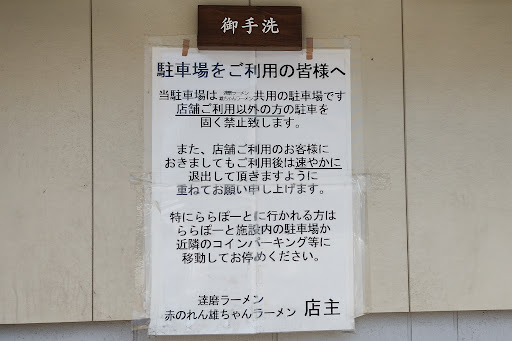 御手洗
駐車場をご利用の皆様へ
当駐車場は達磨ラーメン赤のれん雄ちゃんラーメン共用の駐車場です
店舗ご利用以外の方の駐車を
固く禁止致します。
また、店舗ご利用のお客様に
おきましてもご利用後は速やかに
退出して頂きますように
重ねてお願い申し上げます。
特にららぽーとに行かれる方は
ららぽーと施設内の駐車場か
近隣のコインパーキング等に
移動してお停めください。
達磨ラーメン
赤のれん雄ちゃんラーメン 店主